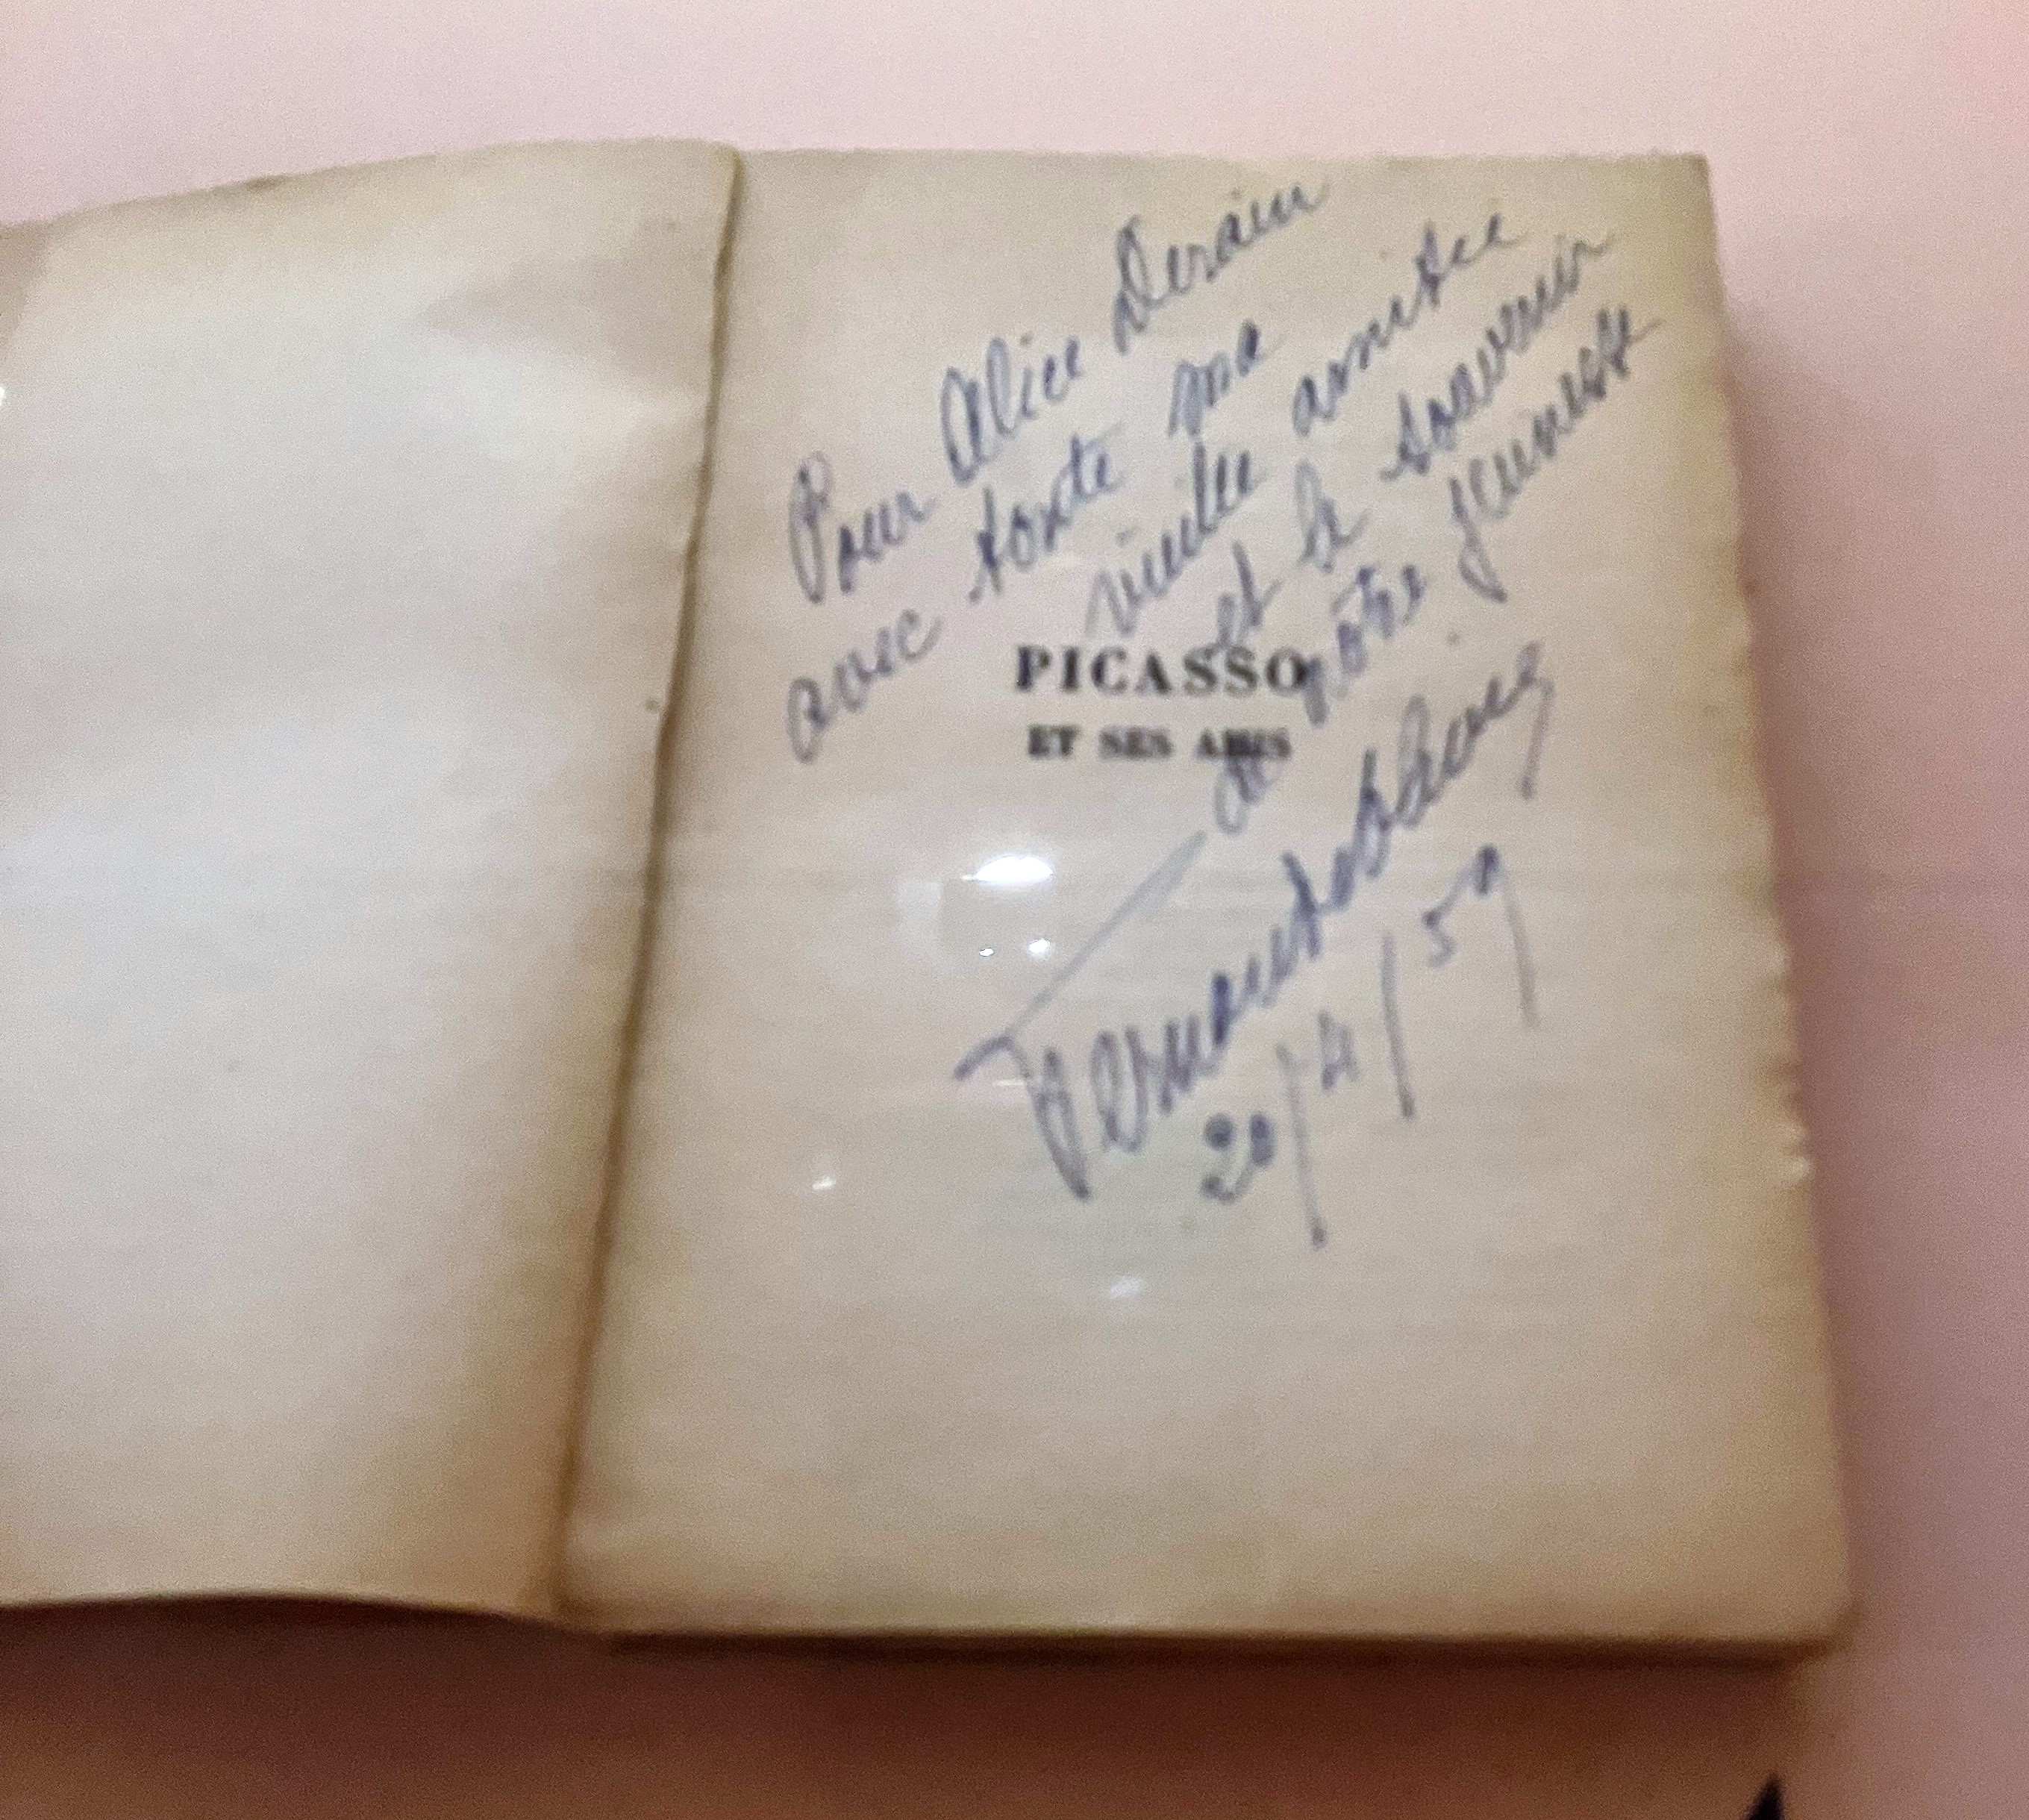 Pour Alice Derain
avec toute ma
vieille amitiée
et le souvenir
de notre jeunesse
PICASSO
ET SES AMIS
Fernande Olivier
20/4/57